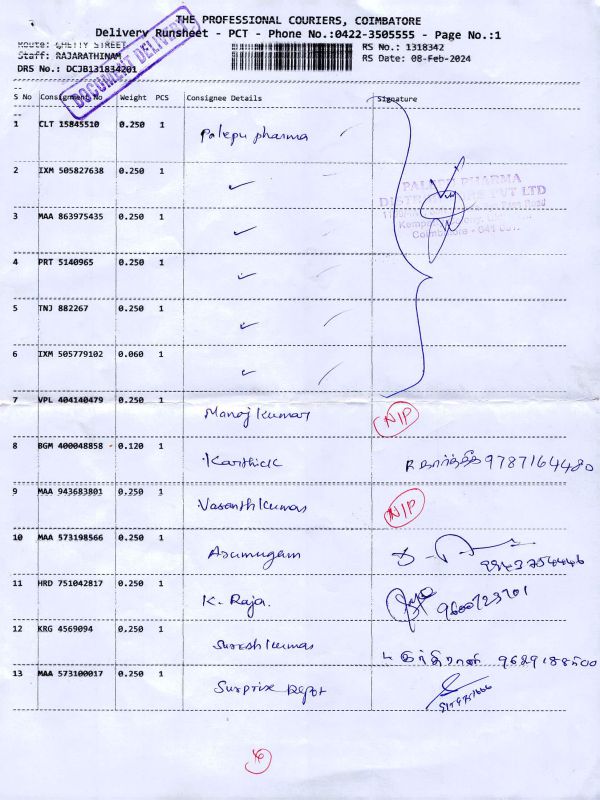 THE PROFESSIONAL COURIERS, COIMBATORE
Delivery Runsheet - PCT - Phone No.:0422-3505555 - Page No.:1
Route: CHETTY STREET
RS No.: 1318342
Staff: RAJARATHINAM
RS Date: 08-Feb-2024
DRS No.: DCJB131834201
DOCUMENT DELIVERY
S No Consignment No Weight PCS Consignee Details Signature
1 CLT 15845510 0.250 1 Palepu pharma
2 IXM 505827638 0.250 1 ✓
PALEPU PHARMA
DISTRIBUTORS PVT LTD
3 MAA 863975435 0.250 1 ✓
Coimbatore - 641
4 PRT 5140965 0.250 1 ✓
5 TNJ 882267 0.250 1 ✓
6 IXM 505779102 0.060 1 ✓
7 VPL 404140479 0.250 1 Manoj Kumar N/P
8 BGM 400048858 0.120 1 Karthick R கார்த்திக் 9787164480
9 MAA 943683801 0.250 1 Vasanth Kumar N/P
10 MAA 573198566 0.250 1 Arumugam
11 HRD 751042817 0.250 1 K. Raja. 9600723701
12 KRG 4569094 0.250 1 Suresh Kumar
13 MAA 573100017 0.250 1 Surprise Depot